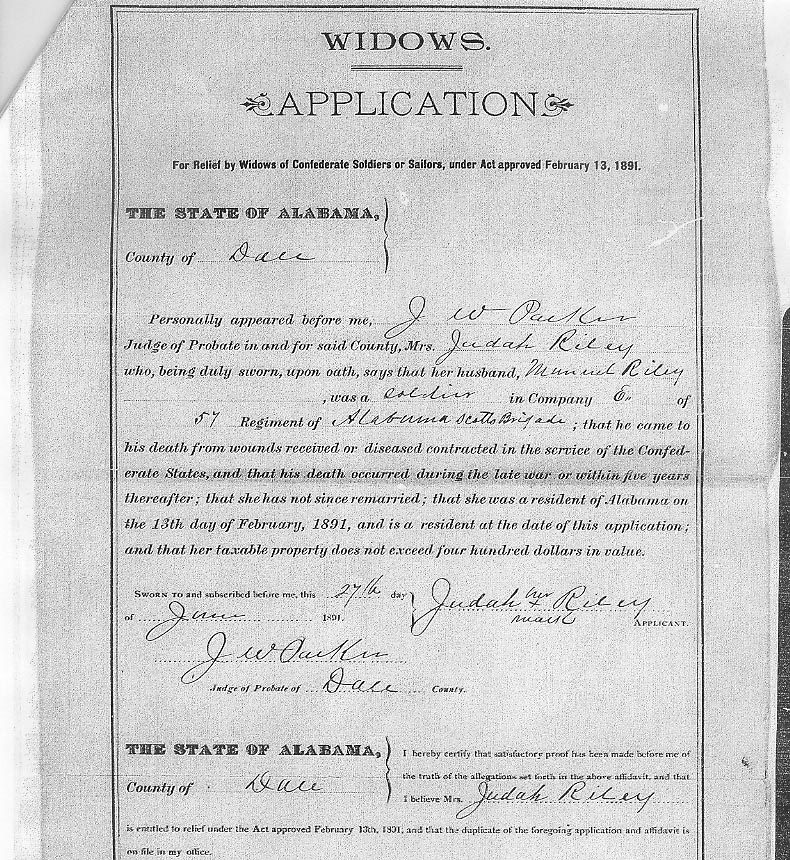 WIDOWS.
APPLICATION
For Relief by Widows of Confederate Soldiers or Sailors, under Act approved February 13, 1891.
THE STATE OF ALABAMA,
County of Dale
Personally appeared before me, J W Parker
Judge of Probate in and for said County, Mrs. Judah Riley
who, being duly sworn, upon oath, says that her husband, Manuel Riley
, was a soldier in Company E. of
57 Regiment of Alabama Scotts Brigade ; that he came to
his death from wounds received or diseased contracted in the service of the Confed-
erate States, and that his death occurred during the late war or within five years
thereafter; that she has not since remarried; that she was a resident of Alabama on
the 13th day of February, 1891, and is a resident at the date of this application;
and that her taxable property does not exceed four hundred dollars in value.
SWORN TO and subscribed before me, this 27th day
of June 1891.
Judah her x mark Riley
APPLICANT.
J W Parker
Judge of Probate of Dale County.
THE STATE OF ALABAMA,
County of Dale
I hereby certify that satisfactory proof has been made before me of
the truth of the allegations set forth in the above affidavit, and that
I believe Mrs. Judah Riley
is entitled to relief under the Act approved February 13th, 1891, and that the duplicate of the foregoing application and affidavit is
on file in my office.